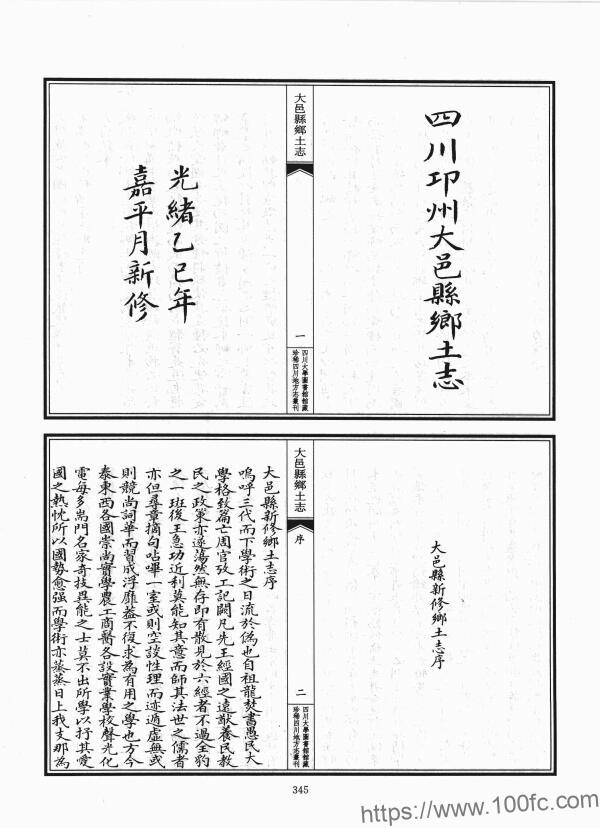 四川邛州大邑縣鄉土志
大邑縣鄉土志
一
四川大學圖書館館藏
珍稀四川地方志叢刊
光緒乙巳年
嘉平月新修
大邑縣新修鄉土志序
大邑縣鄉土志
序
二
四川大學圖書館館藏
珍稀四川地方志叢刊
大邑縣新修鄉土志序
嗚呼三代而下學術之日流於僞也自祖龍焚書愚民大
學格致篇亡周官攷工記闕凡先王經國之遠猷養民教
民之政策亦遂蕩然無存即有散見於六經者不過全豹
之一班後王急功近利莫能知其意而師其法世之儒者
亦但尋章摘句呫嗶一室或則空談性理而迹遁虛無或
則競尚詞華而習成浮靡葢不復求為有用之學也方今
泰東西各國崇尚實學農工商醫各設實業學校聲光化
電每多耑門名家奇技異能之士莫不出所學以抒其愛
國之熱忱所以國勢愈强而學術亦蒸蒸日上我支那為
345
https://www.100fc.com